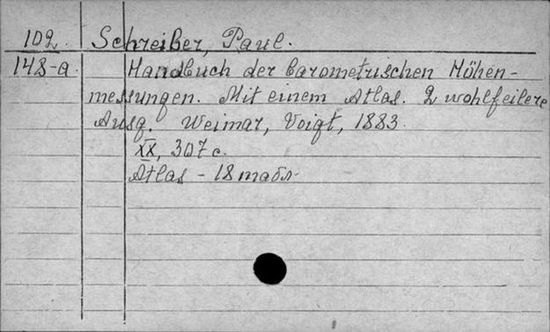 102. Schreiber, Paul.
148-a. Handbuch der barometrischen Höhen-
messungen. Mit einem Atlas. 2 wohlfeilere
Ausg. Weimar, Voigt, 1883.
XX, 307 с.
Atlas - 18 табл.